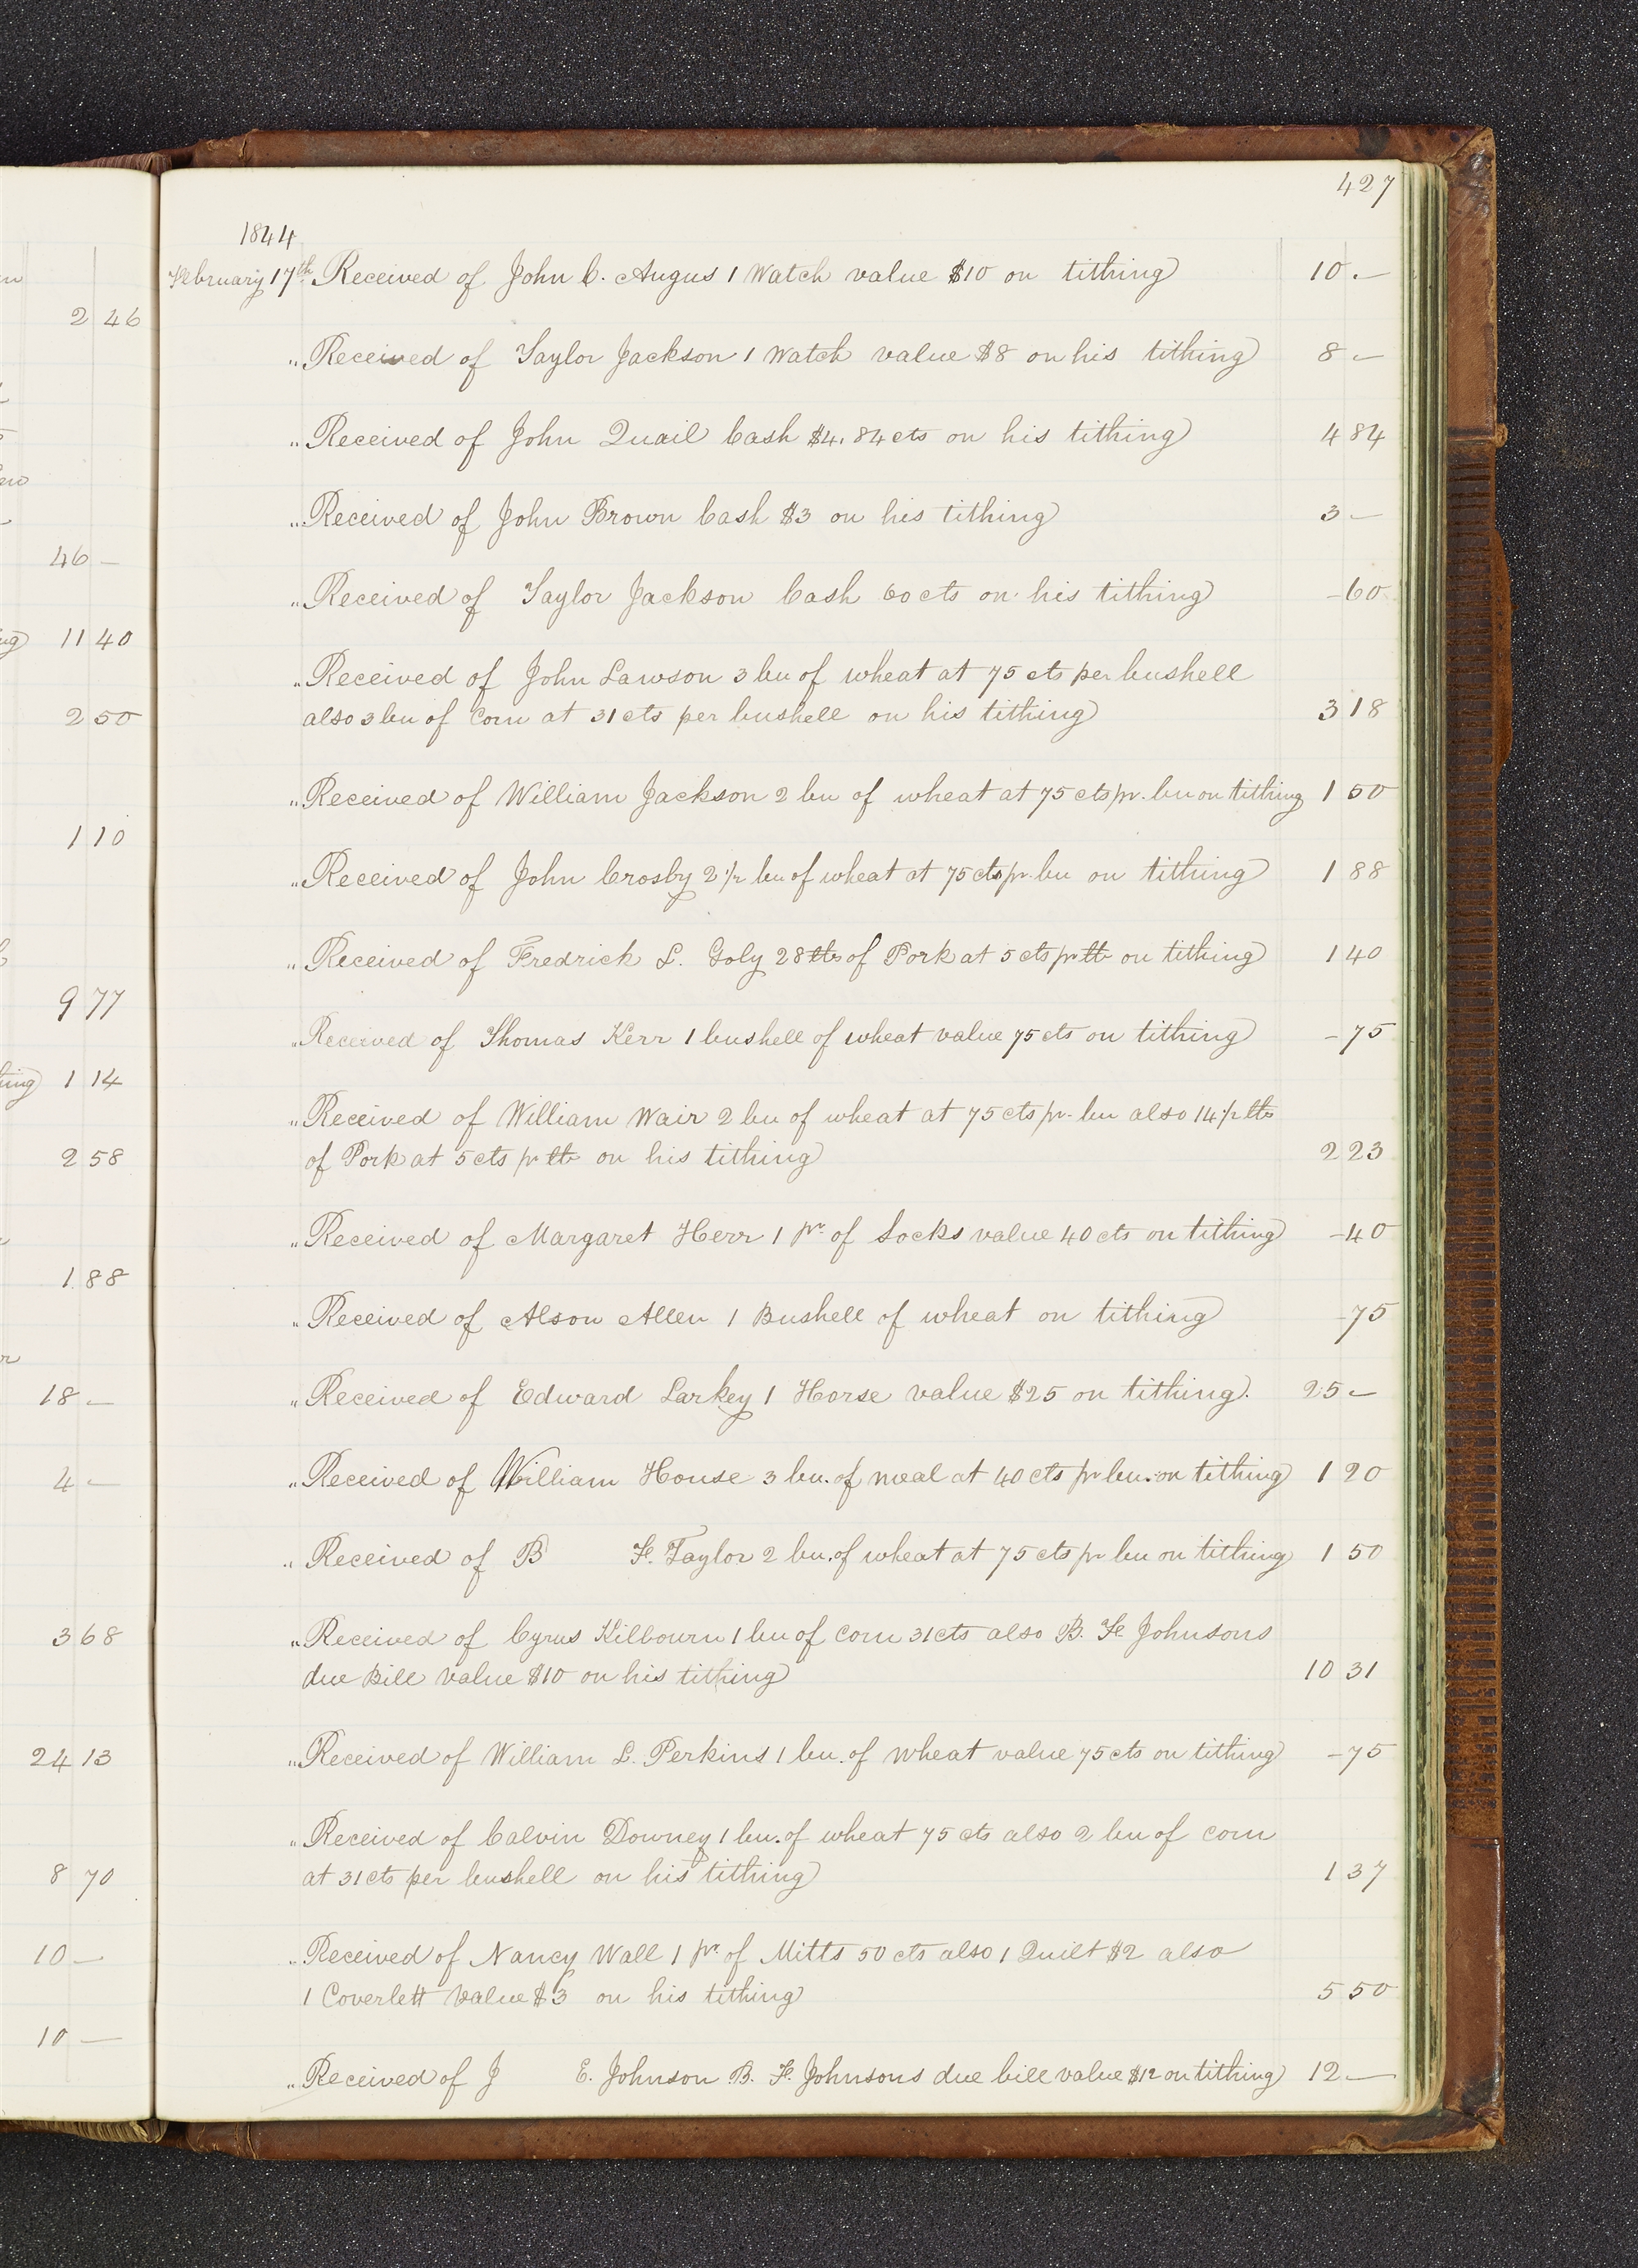 427
1844
February 17th. Received of John C. Angus 1 Watch value $10 on tithing 10.—
" Received of Taylor Jackson 1 Watch value $8 on his tithing 8 —
" Received of John Quail Cash $4.84 cts on his tithing 4 84
" Received of John Brown Cash $3 on his tithing 3 —
" Received of Taylor Jackson Cash 60 cts on his tithing - 60
" Received of John Lawson 3 bu of wheat at 75 cts per bushell
also 3 bu of Corn at 31 cts per bushell on his tithing 3 18
" Received of William Jackson 2 bu of wheat at 75 cts pr. bu on tithing 1 50
" Received of John Crosby 2 1/2 bu of wheat at 75 cts pr. bu on tithing 1 88
" Received of Fredrick L. Goly 28 lbs of Pork at 5 cts pr lb on tithing 1 40
" Received of Thomas Kerr 1 bushell of wheat value 75 cts on tithing - 75
" Received of William Wair 2 bu of wheat at 75 cts pr. bu also 14 1/2 lbs
of Pork at 5 cts pr lb on his tithing 2 23
" Received of Margaret Herr 1 pr. of Socks value 40 cts on tithing - 40
" Received of Alson Allen 1 Bushell of wheat on tithing - 75
" Received of Edward Larkey 1 Horse value $25 on tithing. 25 —
" Received of William House 3 bu. of meal at 40 cts pr bu. on tithing 1 20
" Received of B F. Taylor 2 bu. of wheat at 75 cts pr bu on tithing 1 50
" Received of Cyrus Kilbourn 1 bu of Corn 31 cts also B. F Johnsons
due Bill value $10 on his tithing 10 31
" Received of William L. Perkins 1 bu. of wheat value 75 cts on tithing - 75
" Received of Calvin Downey 1 bu. of wheat 75 cts also 2 bu of corn
at 31 cts per bushell on his tithing 1 37
" Received of Nancy Wall 1 pr. of Mitts 50 cts also 1 Quilt $2 also
1 Coverlett value $3 on his tithing 5 50
" Received of J E. Johnson B. F. Johnsons due bill value $12 on tithing 12 —
2 46
46 —
11 40
2 50
1 10
9 77
1 14
2 58
1 88
18 —
4 —
3 68
24 13
8 70
10 —
10 —